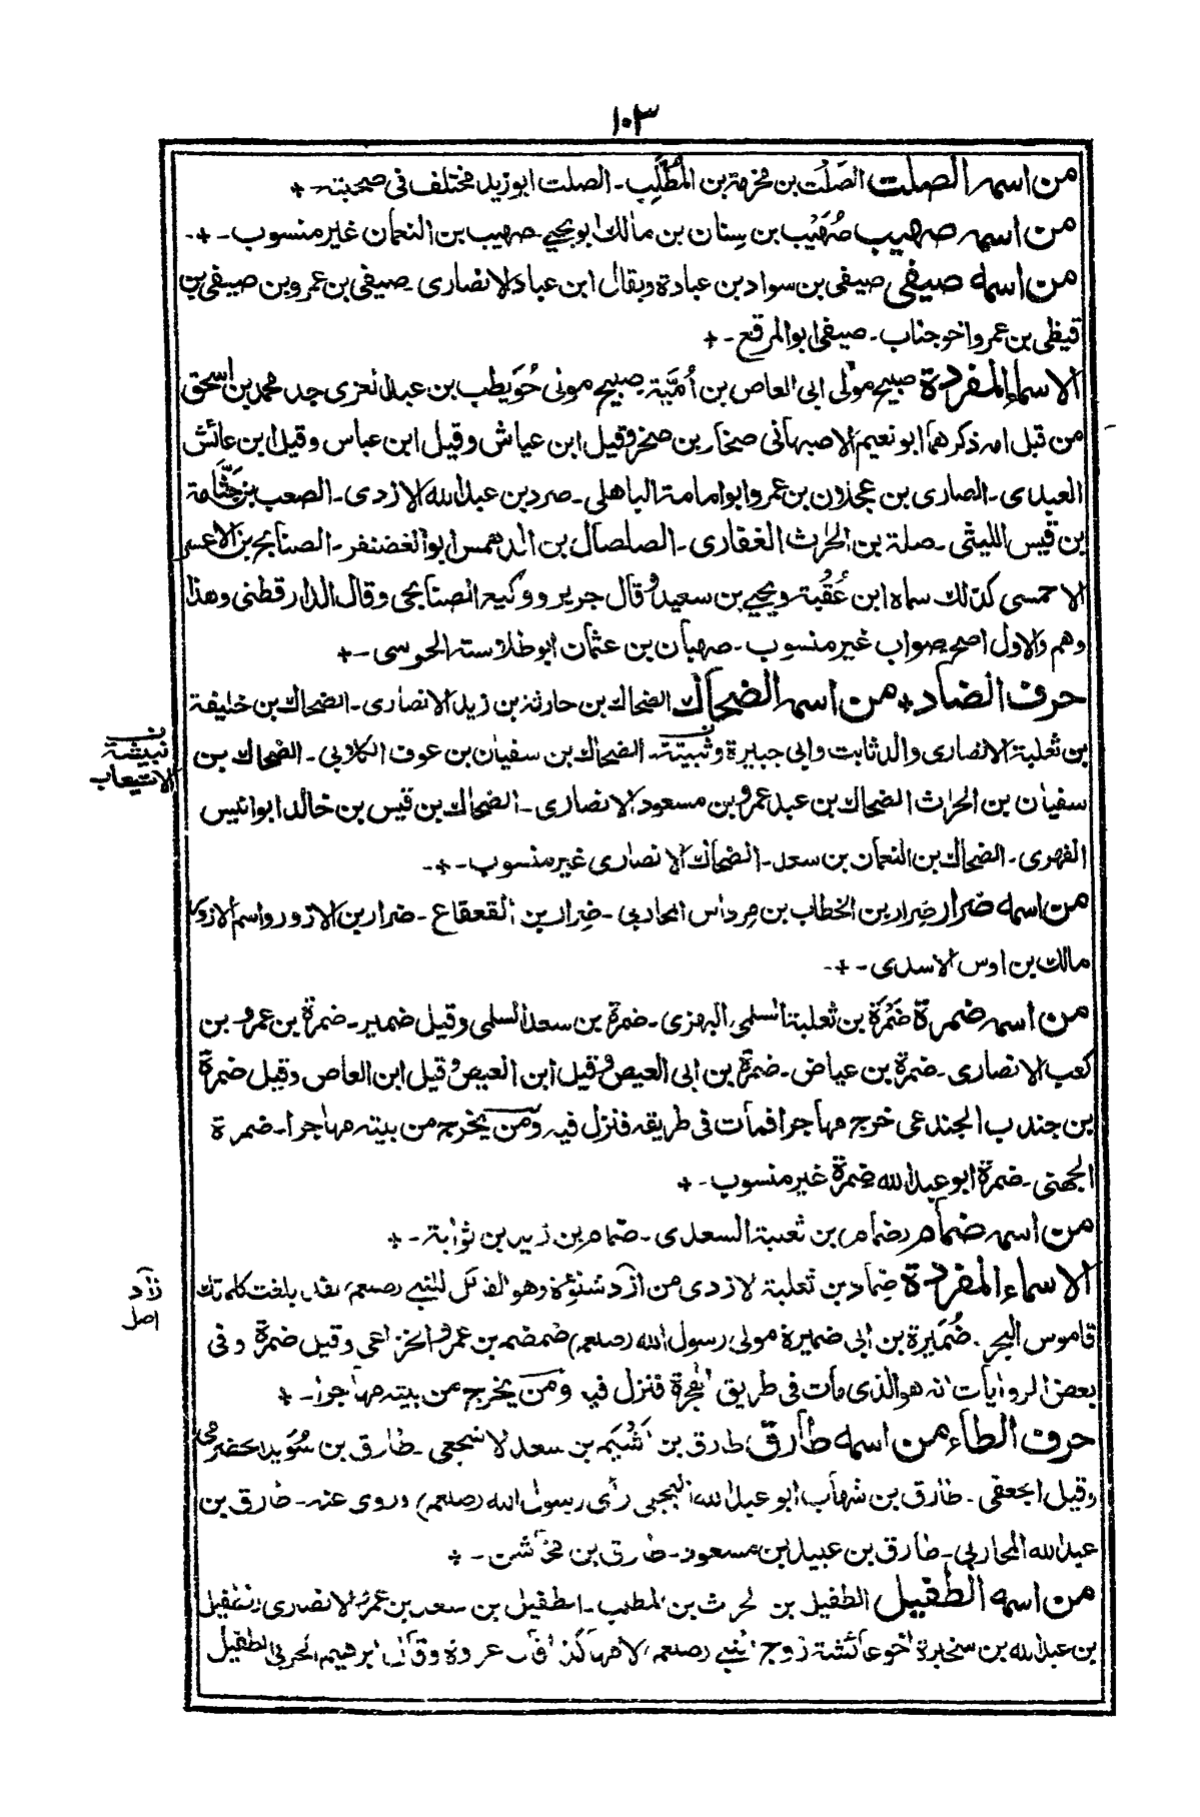 ١٠٣
من اسمه الصلت الصَلْت بن مخرمة بن المُطَّلِب ـ الصلت ابو زيد مختلف فى صحبته ـ +
من اسمه صهيب صُهَيْب بن سِنان بن مالك ابو يحيے ـ صهيب بن النعمان غير منسوب ـ + ـ
من اسمه صيفى صيفى بن سواد بن عبادة ويقال ابن عباد الانصارى ـ صيفى بن عمرو بن صيفى بن
قيظى بن عمرو اخو جناب ـ صيفى ابو المرقع ـ +
الاسماء المفردة صبيح مولى ابى العاص بن أُمَيَّة ـ صبيح مولى حُوَيطب بن عبد العزى جد محمد بن اسحق
من قبل امه ذكرهما ابو نعيم الاصبهانى صحار بن صخر وقيل ابن عياش وقيل ابن عباس وقيل ابن عائش
العبدى ـ الصدى بن عجلان بن عمرو ابو امامة الباهلى ـ صرد بن عبد الله الازدى ـ الصعب بن جَثَّامة
بن قيس الليثى ـ صلة بن الحرث الغفارى ـ الصلصال بن الدلهمس ابو الغضنفر ـ الصنابح بن الاعسر
الاحمسى كذلك سماه ابن عُقْبة ويحيے بن سعيد وقال جرير ووكيع الصنابحى وقال الدارقطنى وهذا
وهم والاول اصح صواب غير منسوب ـ صهبان بن عثمان ابو طلاسة الحوسى ـ +
حرف الضاد + من اسمه الضحاك الضحاك بن حارثة بن زيد الانصارى ـ الضحاك بن خليفة
بن ثعلبة الانصارى والد ثابت وابى جبيرة وثبيتة ـ الضحاك بن سفيان بن عوف الكلابى ـ الضحاك بن
نبيشة
الاستيعاب
سفيان بن الحرث الضحاك بن عبد عمرو بن مسعود الانصارى ـ الضحاك بن قيس بن خالد ابو انيس
الفهرى ـ الضحاك بن النعمان بن سعد ـ الضحاك الانصارى غير منسوب ـ + ـ
من اسمه ضرار ضِرار بن الخطاب بن مِرداس المحاربى ـ ضِرار بن القعقاع ـ ضرار بن الازور واسم الازور
مالك بن اوس الاسدى ـ + ـ
من اسمه ضمرة ضَمْرَة بن ثعلبة السلمى البهزى ـ ضمرة بن سعد السلمى وقيل ضمير ـ ضمرة بن عمرو بن
كعب الانصارى ـ ضمرة بن عياض ـ ضمرة بن ابى العيص وقيل ابن العيص وقيل ابن العاص وقيل ضمرة
بن جندب الجندعى خرج مهاجرا فمات فى طريقه فنزل فيه ومن يخرج من بيته مهاجرا ـ ضمرة
الجهنى ـ ضمرة ابو عبد الله ضمرة غير منسوب ـ +
من اسمه ضمام ضمام بن ثعلبة السعدى ـ ضمام بن زيد بن ثوابة ـ +
الاسماء المفردة ضِماد بن ثعلبة الازدى من ازد شنؤة وهو القائل للنبے (صلعم) لقد بلغت كلماتك
زاد
اصل
قاموس البحر ـ ضُمَيرة بن ابى ضميرة مولى رسول الله (صلعم) ضمضم بن عمرو الخزاعى وقيل ضمرة وفى
بعض الروايات انه هو الذى مات فى طريق الهجرة فنزل فيه ومن يخرج من بيته مهاجرا ـ +
حرف الطاء من اسمه طارق طارق بن اَشْيَم بن سعد الاشجعى ـ طارق بن سُوَيد الحضرمى
وقيل الجعفى ـ طارق بن شهاب ابو عبد الله البجلى رأى رسول الله (صلعم) وروى عنه ـ طارق بن
عبد الله المحاربى ـ طارق بن عبيد بن مسعود ـ طارق بن مخاشن ـ +
من اسمه الطفيل الطفيل بن الحرث بن المطلب ـ الطفيل بن سعد بن عمرو الانصارى ـ الطفيل
بن عبد الله بن سخبرة اخو عائشة زوج النبے (صلعم) لامها كذا قال عروة وقال ابرهيم الحربى الطفيل